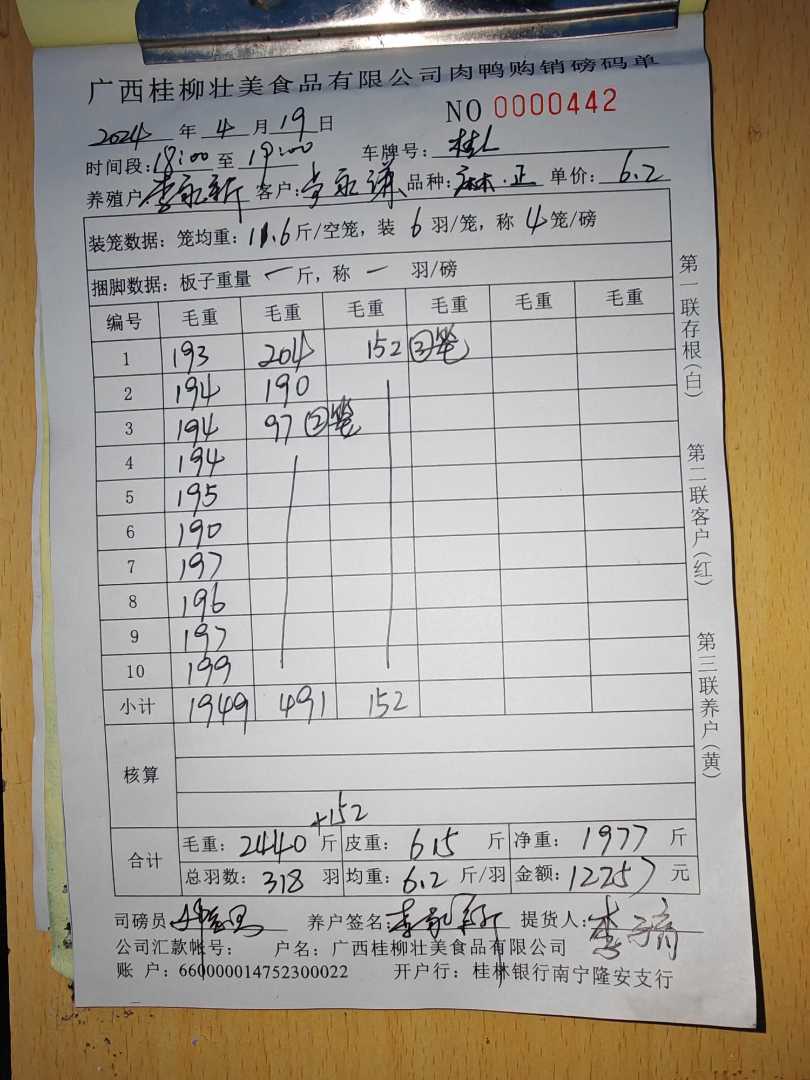 广西桂柳壮美食品有限公司肉鸭购销磅码单
NO 0000442
2024 年 4 月 19 日
时间段: 18:00 至 19:00 车牌号:
养殖户: 李永新 客户: 品种: 麻·正 单价: 6.2
装笼数据: 笼均重: 11.6 斤/空笼, 装 6 羽/笼, 称 4 笼/磅
捆脚数据: 板子重量 一 斤, 称 一 羽/磅
编号 毛重 毛重 毛重 毛重 毛重 毛重
1 193 204 152 ③笼
2 194 190
3 194 97 ②笼
4 194
5 195
6 190
7 197
8 196
9 197
10 199
小计 1949 491 152
核算
+152
合计 毛重: 2440 斤 皮重: 615 斤 净重: 1977 斤
总羽数: 318 羽 均重: 6.2 斤/羽 金额: 12257 元
司磅员 养户签名: 李永新 提货人:
公司汇款帐号: 户名: 广西桂柳壮美食品有限公司
账 户: 660000014752300022 开户行: 桂林银行南宁隆安支行
第一联存根(白)
第二联客户(红)
第三联养户(黄)